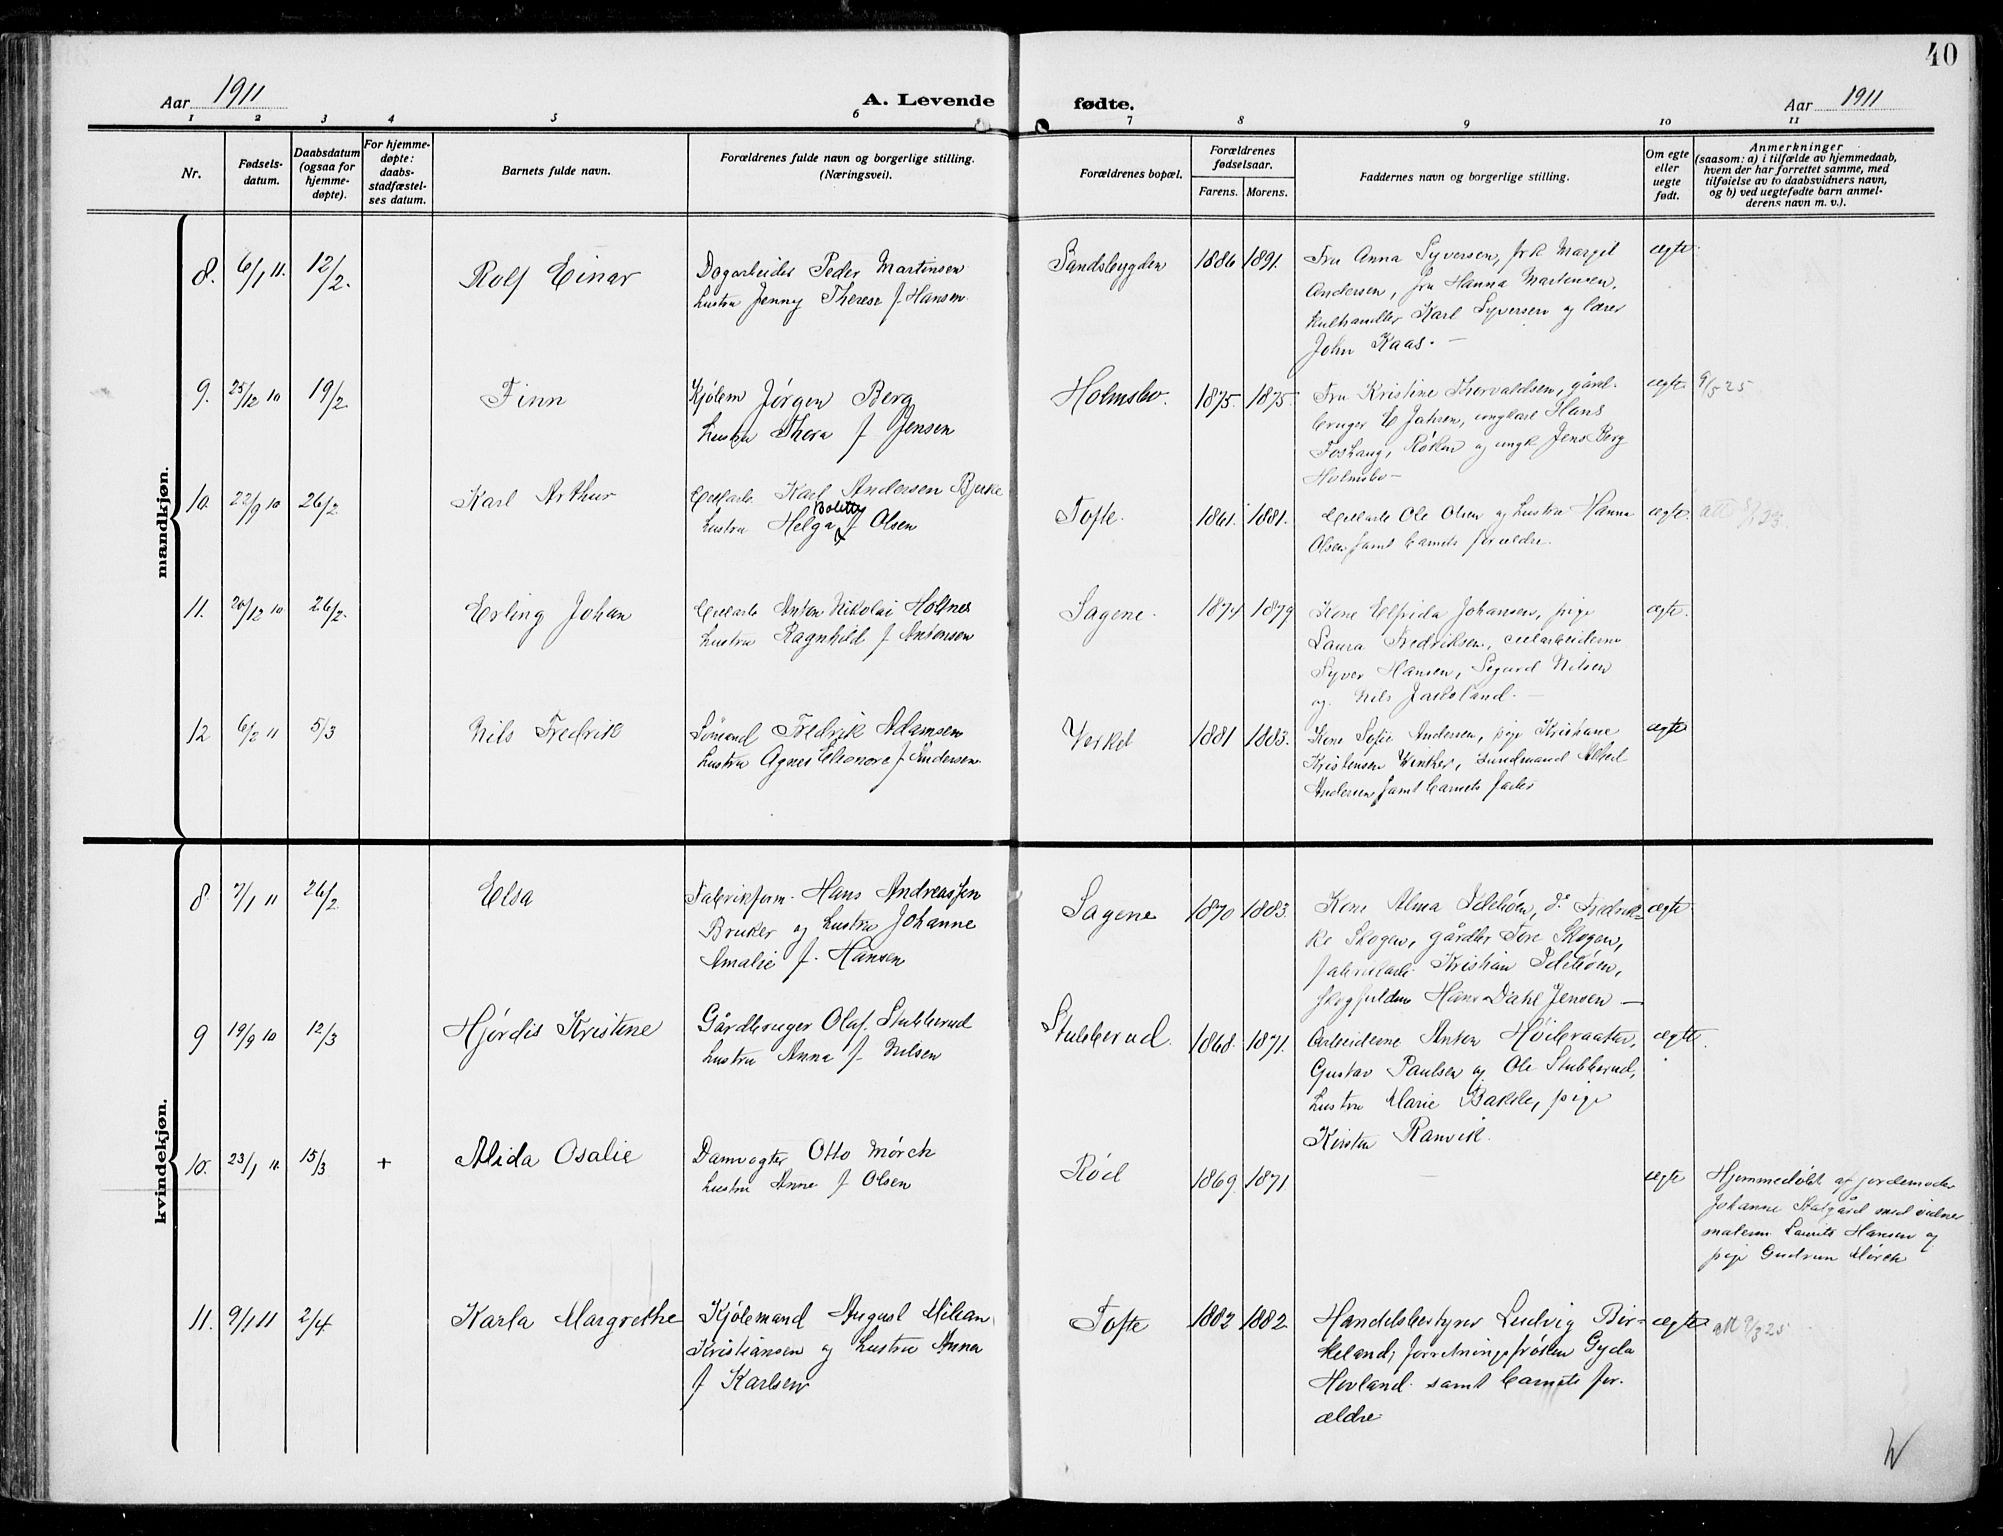 40
Aar 1911
A. Levende fødte.
Aar 1911
1 2 3 4 5 6 7 8 9 10 11
Nr.
Fødsels-
datum.
Daabsdatum
(ogsaa for
hjemme-
døpte).
For hjemme-
døpte:
daabs-
stadfæstel-
ses datum.
Barnets fulde navn.
Forældrenes fulde navn og borgerlige stilling.
(Næringsvei).
Forældrenes bopæl.
Forældrenes
fødselsaar.
Farens. Morens.
Faddernes navn og borgerlige stilling.
Om egte
eller
uegte
født.
Anmerkninger
(saasom: a) i tilfælde av hjemmedaab,
hvem der har forrettet samme, med
tilføielse av to daabsvidners navn,
og b) ved uegtefødte barn anmel-
derens navn m. v.).
mandkjøn.
8. 6/1 11. 12/2. Rolf Einar
Dagarbeider Peder Martinsen
hustru Jenny Therese f. Hansen
Sandsbygden 1886 1891.
Fru Anna Syversen, frk Margit
Andersen, fru Hanna Martensen,
kulhandler Karl Syversen og lærer
John Kaas. —
ægte
9. 25/12 10 19/2 Finn
Kjølem Jørgen Berg
hustru Thora f Jensen
Holmsbo. 1875. 1875.
Fru Kristine Thorvaldsen, gård-
bruger E Jahsen, ungkarl Hans
Foshaug, Røken og ungk Jens Berg
Holmsbo —
ægte 9/5 25
10. 22/9 10 26/2 Karl Arthur
Cellarb Karl Andersen Bjerke
Bolette
hustru Helga f Olsen
Tofte. 1861. 1881.
Cellarb Ole Olsen og hustru Hanna
Olsen samt barnets forældre.
ægte.
11. 20/12 10 26/2. Erling Johan
Cellarb Anton Nikolai Holtnes
hustru Ragnhild f Antonsen
Sagene. 1874 1879
Kone Elfrida Johansen, pige
Laura Fredriksen, cellarbeiderne
Syver Hansen, Sigurd Nilsen
og Nils —
ægte.
12 6/2 11 5/3 Nils Fredrik
Sømand Fredrik Adamsen
hustru Agnes Elionore f Andersen
Verket 1881 1883.
Kone Sofie Andersen, pige Kristiane
Kristensen Vinker, Alfred
Andersen, samt barnets fader
ægte
kvindekjøn.
8 7/1 11 26/2 Elsa
Fabrikform. Hans Andreassen
Bruker og hustru Johanne
Amalie f. Hansen
Sagene 1870 1883.
Kone Alma Idehøen, do Fredrik-
ke Skogen, gårdbr Tore Skogen,
fabrikarb. Kristian Idehøen,
Hans Dahl Jensen —
ægte
9 19/9 10 12/3 Hjørdis Kristine
Gårdbruger Olaf Stubberud
hustru Anna f. Nilsen
Stubberud. 1868. 1871.
Arbeiderne Anton Høibraaten,
Gustav Paulsen og Ole Stubberud,
hustru Marie Bakke, pige
Kirsten Ramvik.
ægte.
10. 23/1 11. 15/3 + Alida Osalie
Damvogter Otto Mørch
hustru Anne f Olsen
Rød 1869. 1871.
—
ægte
Hjemmedøbt af jordemoder
Johanne Stalgård med vidner
malerm Laurits Hansen og
pige Gudrun Mørch
11. 9/1 11 2/4 Karla Margrethe
Kjølemand August Milian
Kristiansen og hustru Anna
f Karlsen
Tofte 1882 1882.
Handelsbestyrer Ludvig Bir-
keland, forretningsfrøken Gyda
Hovland samt barnets for-
ældre
ægte att 9/3 25